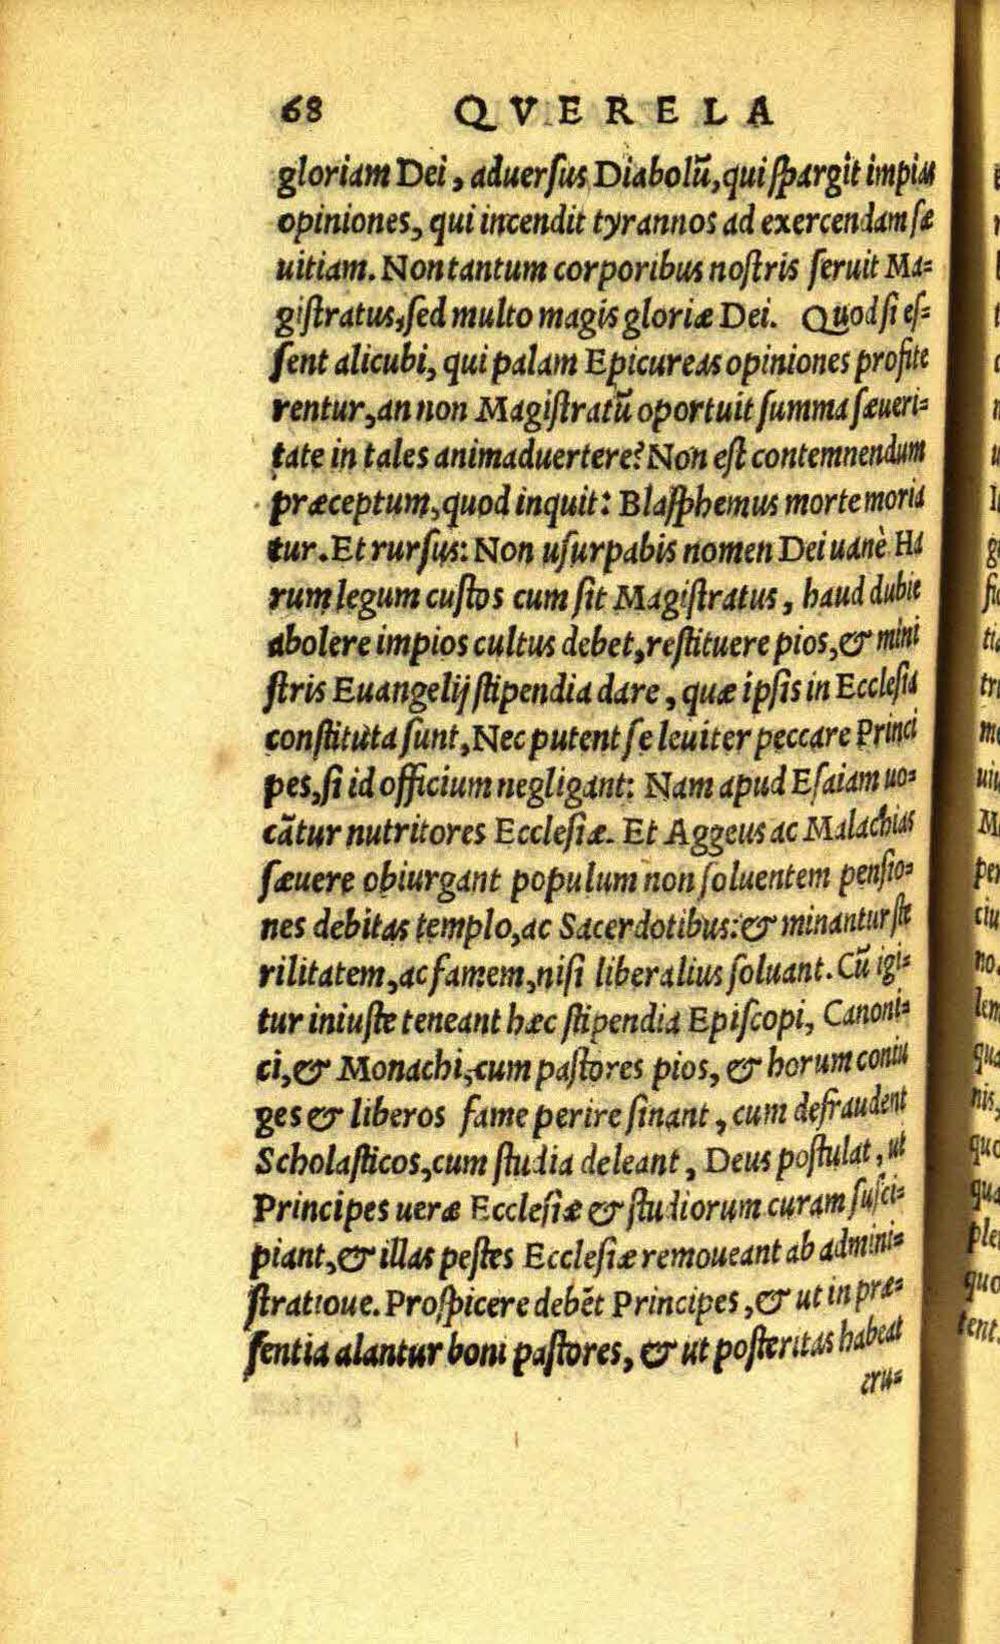 68 QVERELA
gloriam Dei, aduersus Diabolũ, qui spargit impias
opiniones, qui incendit tyrannos ad exercendam sæ
uitiam. Non tantum corporibus nostris seruit Ma=
gistratus, sed multo magis gloriæ Dei. Quod si es=
sent alicubi, qui palam Epicureas opiniones profite
rentur, an non Magistratũ oportuit summa sæueri=
tate in tales animaduertere? Non est contemnendum
præceptum, quod inquit: Blasphemus morte moria
tur. Et rursus: Non usurpabis nomen Dei uanè Ha
rum legum custos cum sit Magistratus, haud dubie
abolere impios cultus debet, restituere pios, & mini
stris Euangelij stipendia dare, quæ ipsis in Ecclesia
constituta sunt, Nec putent se leuiter peccare Princi
pes, si id officium negligant: Nam apud Esaiam uo=
cãtur nutritores Ecclesiæ. Et Aggeus ac Malachias
sæuere obiurgant populum non soluentem pensio=
nes debitas templo, ac Sacerdotibus: & minantur ste
rilitatem, ac famem, nisi liberalius soluant. Cũ igi=
tur iniuste teneant hæc stipendia Episcopi, Canoni=
ci, & Monachi, cum pastores pios, & horum coniu
ges & liberos fame perire sinant, cum defraudent
Scholasticos, cum studia deleant, Deus postulat, ut
Principes ueræ Ecclesiæ & studiorum curam susci=
piant, & illas pestes Ecclesiæ remoueant ab admini=
stratioue. Prospicere debẽt Principes, & ut in præ=
sentia alantur boni pastores, & ut posteritas habeat
eru=